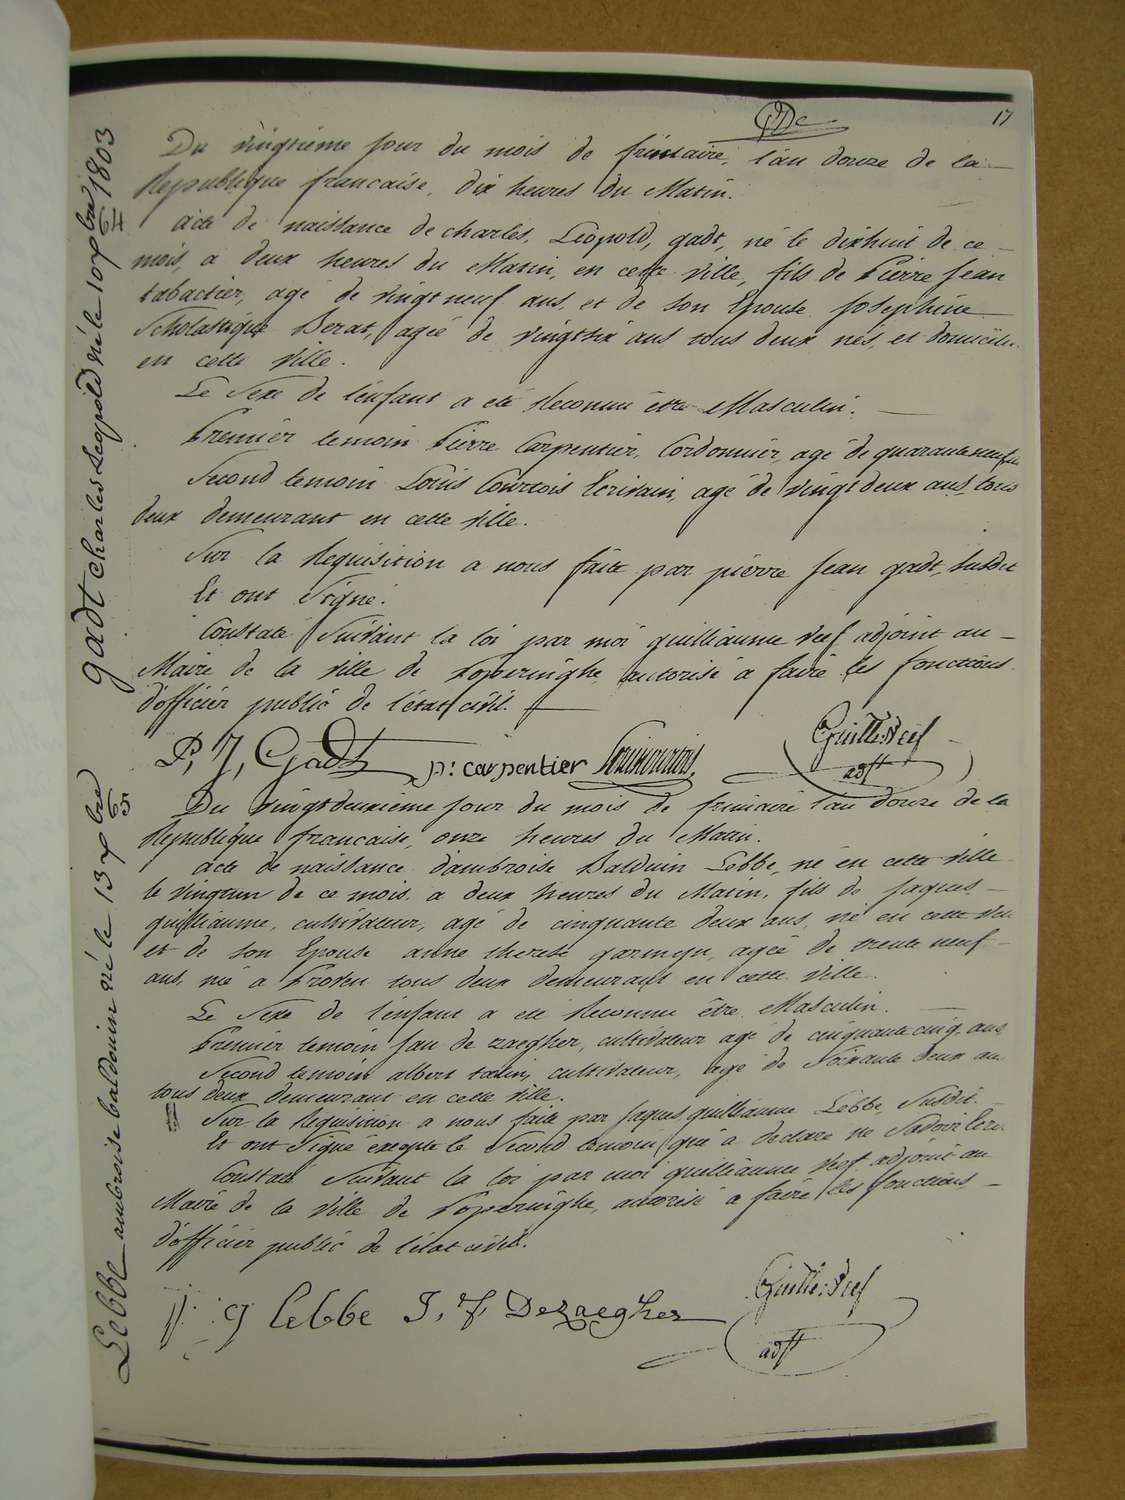 17
Du vingtiéme jour du mois de frimaire, l'an douze de la
Republique francaise, dix heures du Matin.
acte de naissance de charles, Léopold, gadt, né le dixhuit de ce
mois, a deux heures du Matin, en cette ville, fils de Pierre Jean
tabactier, agé de vingt neuf ans, et de son Epouse Josephine
Scholastique Berat, agée de vingtsix ans tous deux nés, et domiciliés
en cette ville.
Le Sexe de l'enfant a eté Reconnu être Masculin.
Premiér temoin Pierre Carpentier, Cordonniér, agé de quarante neuf ans
Second temoin Louis Courtois Ecrivain, agé de vingt deux ans, tous
deux demeurant en cette ville.
Sur la Requisition a nous faite par piérre Jean gadt, Susdit
Et ont Signé.
Constaté Suivant la loi par moi guilliaume Veef adjoint au
Maire de la ville de Poperinghe autorisé a faire les fonctions
d'officiér public de l'état civil.
P, J, Gadt p: carpentier Louis Courtois Guille: Veef
adjt
Du vingtdeuxiéme jour du mois de frimaire l'an douze de la
Republique francaise, onze heures du Matin.
acte de naissance d'ambroise Balduin Lebbe, né en cette ville
le vingtun de ce mois, a deux heures du Matin, fils de Jaques
guilliaume, cultivateur, agé de cinquante deux ans, né en cette ville
et de son Epouse anne therese garmyn, ageé de trente neuf
ans, née a Proven tous deux demeurant en cette ville.
Le Sexe de l'enfant a eté Reconnu être Masculin.
Premier temoin Jan de zaegher, cultivateur agé de cinquante cinq ans
Second temoin albert talin, cultivateur, agé de Soixante deux ans
tous deux demeurant en cette ville.
Sur la Requisition a nous faite par Jaques guilliaume Lebbe, Susdit.
Et ont Signé éxcepté le Second temoin qui a declaré ne Savoir Ecrire
Constaté Suivant la loi par moi guilliaume Veef adjoint au
Maire de la ville de Poperinghe, autorisé a faire les fonctions
d'officiér public de l'état civil.
J: g lebbe J, F, Dezaegher Guille: Veef
adjt
gadt Charles Leopold né le 10 xbre 1803
Lebbe ambroise baldouin né le 13 xbre